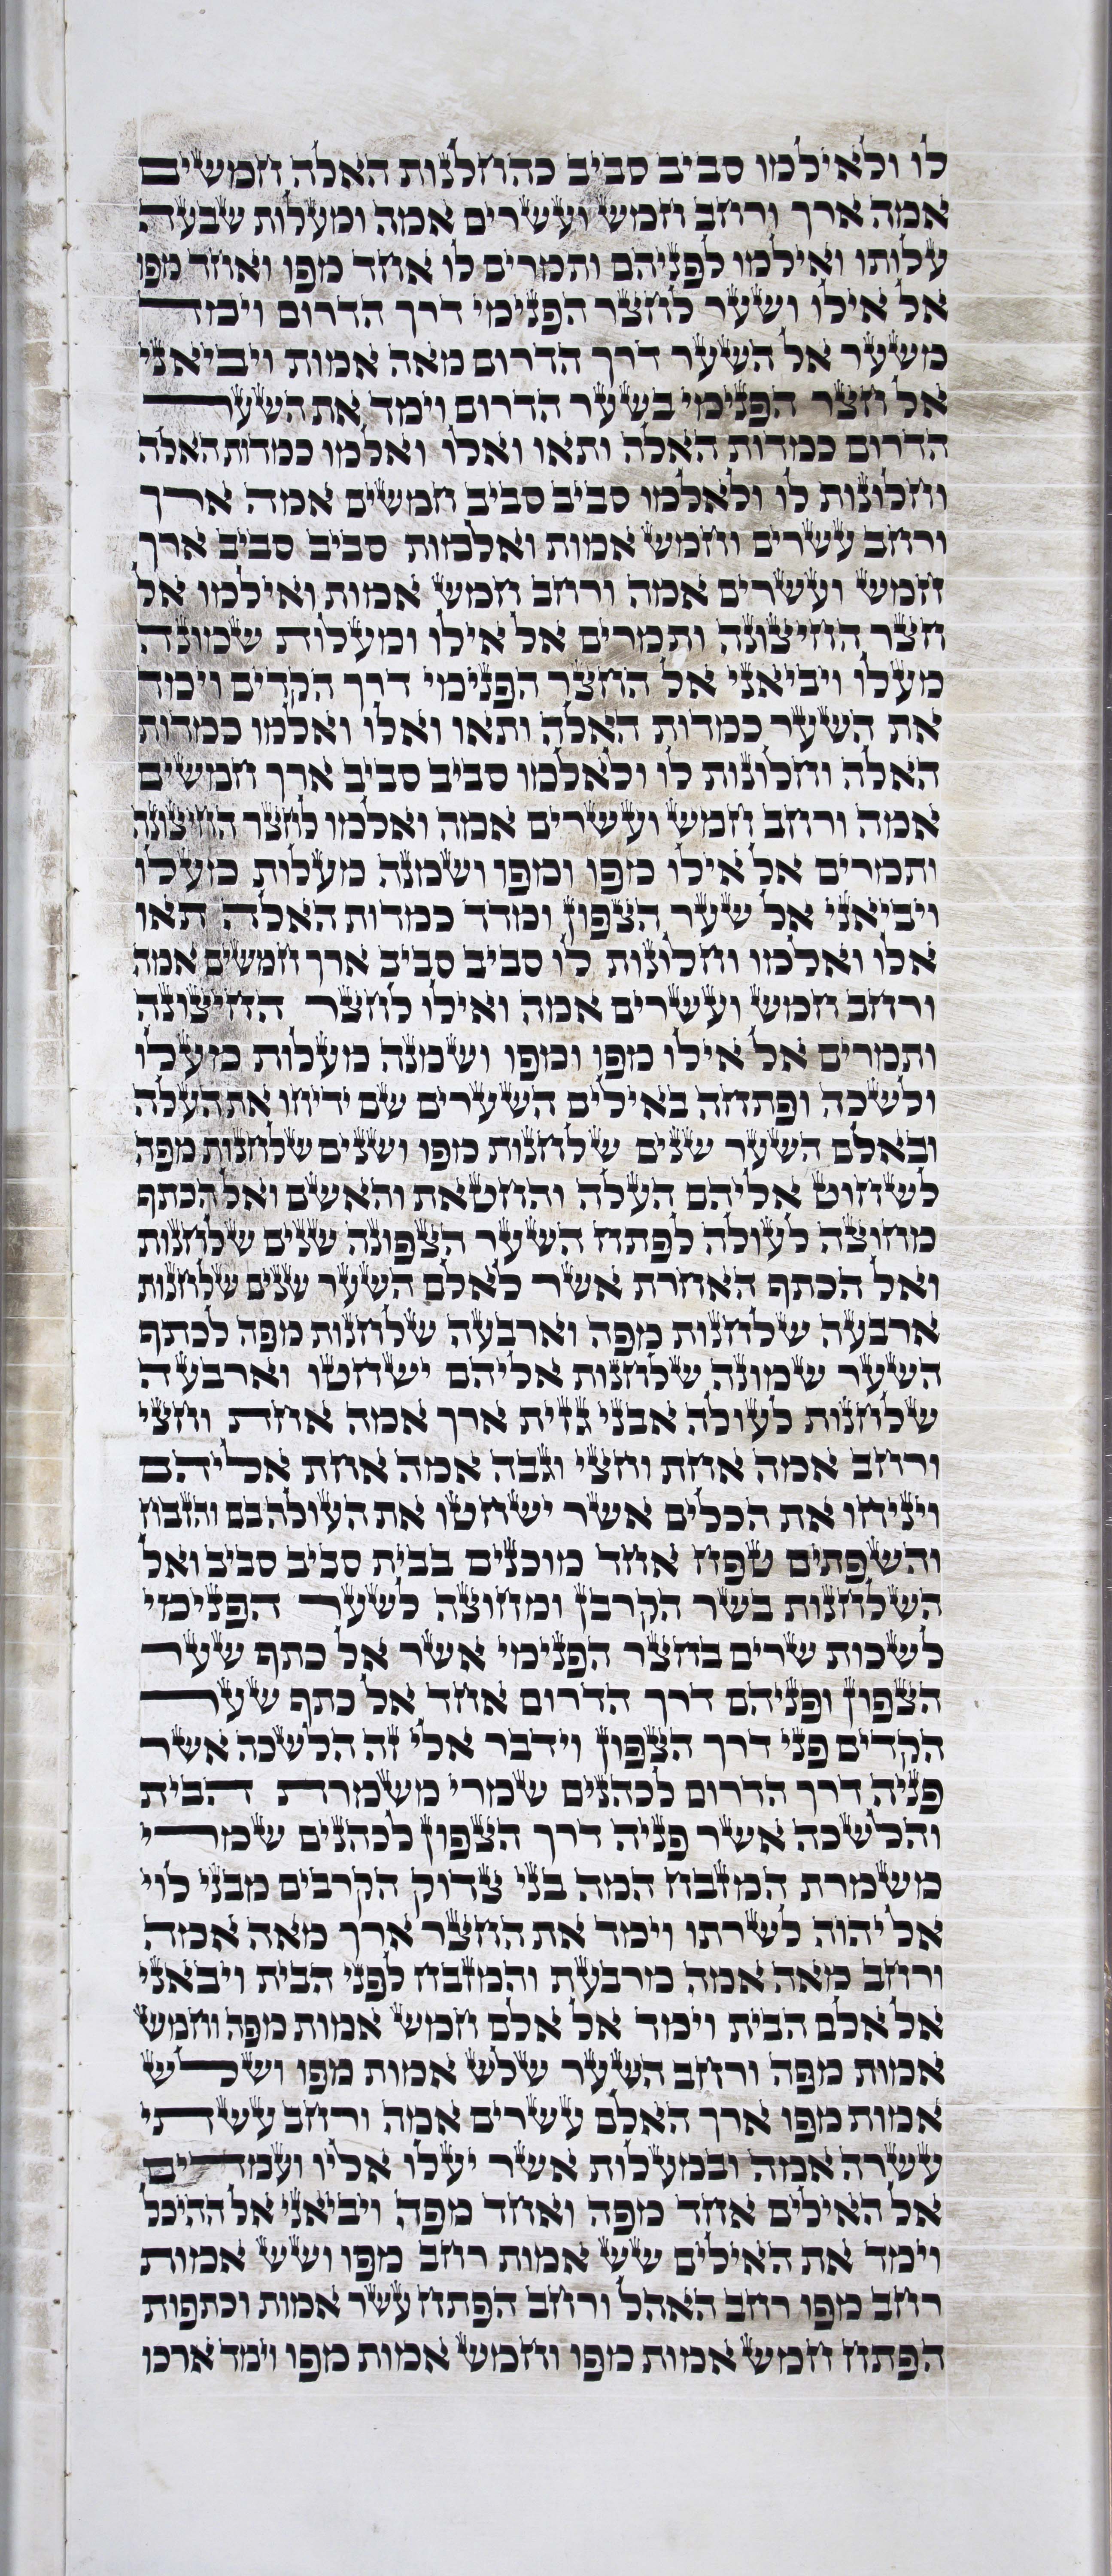 לו ולאילמו סביב סביב כהחלנות האלה חמשים
אמה ארך ורחב חמש ועשרים אמה ומעלות שבעה
עלותו ואילמו לפניהם ותמרים לו אחד מפו ואחד מפו
אל אילו ושער לחצר הפנימי דרך הדרום וימד
משער אל השער דרך הדרום מאה אמות ויביאני
אל חצר הפנימי בשער הדרום וימד את השער
הדרום כמדות האלה ותאו ואלו ואלמו כמדות האלה
וחלונות לו ולאלמו סביב סביב חמשים אמה ארך
ורחב עשרים וחמש אמות ואלמות סביב סביב ארך
חמש ועשרים אמה ורחב חמש אמות ואילמו אל
חצר החיצונה ותמרים אל אילו ומעלות שמונה
מעלו ויביאני אל החצר הפנימי דרך הקדים וימד
את השער כמדות האלה ותאו ואלו ואלמו כמדות
האלה וחלונות לו ולאלמו סביב סביב ארך חמשים
אמה ורחב חמש ועשרים אמה ואלמו לחצר החיצונה
ותמרים אל אילו מפו ומפו ושמנה מעלות מעלו
ויביאני אל שער הצפון ומדד כמדות האלה תאו
אלו ואלמו וחלונות לו סביב סביב ארך חמשים אמה
ורחב חמש ועשרים אמה ואילו לחצר החיצונה
ותמרים אל אילו מפו ומפו ושמנה מעלות מעלו
ולשכה ופתחה באילים השערים שם ידיחו את העלה
ובאלם השער שנים שלחנות מפו ושנים שלחנות מפה
לשחוט אליהם העלה והחטאת והאשם ואל הכתף
מחוצה לעולה לפתח השער הצפונה שנים שלחנות
ואל הכתף האחרת אשר לאלם השער שנים שלחנות
ארבעה שלחנות מפה וארבעה שלחנות מפה לכתף
השער שמונה שלחנות אליהם ישחטו וארבעה
שלחנות לעולה אבני גזית ארך אמה אחת וחצי
ורחב אמה אחת וחצי וגבה אמה אחת אליהם
ויניחו את הכלים אשר ישחטו את העולה בם והזבח
והשפתים טפח אחד מוכנים בבית סביב סביב ואל
השלחנות בשר הקרבן ומחוצה לשער הפנימי
לשכות שרים בחצר הפנימי אשר אל כתף שער
הצפון ופניהם דרך הדרום אחד אל כתף שער
הקדים פני דרך הצפון וידבר אלי זה הלשכה אשר
פניה דרך הדרום לכהנים שמרי משמרת הבית
והלשכה אשר פניה דרך הצפון לכהנים שמרי
משמרת המזבח המה בני צדוק הקרבים מבני לוי
אל יהוה לשרתו וימד את החצר ארך מאה אמה
ורחב מאה אמה מרבעת והמזבח לפני הבית ויבאני
אל אלם הבית וימד אל אלם חמש אמות מפה וחמש
אמות מפה ורחב השער שלש אמות מפו ושלש
אמות מפו ארך האלם עשרים אמה ורחב עשתי
עשרה אמה ובמעלות אשר יעלו אליו ועמדים
אל האילים אחד מפה ואחד מפה ויביאני אל ההיכל
וימד את האילים שש אמות רחב מפו ושש אמות
רחב מפו רחב האהל ורחב הפתח עשר אמות וכתפות
הפתח חמש אמות מפו וחמש אמות מפו וימד ארכו